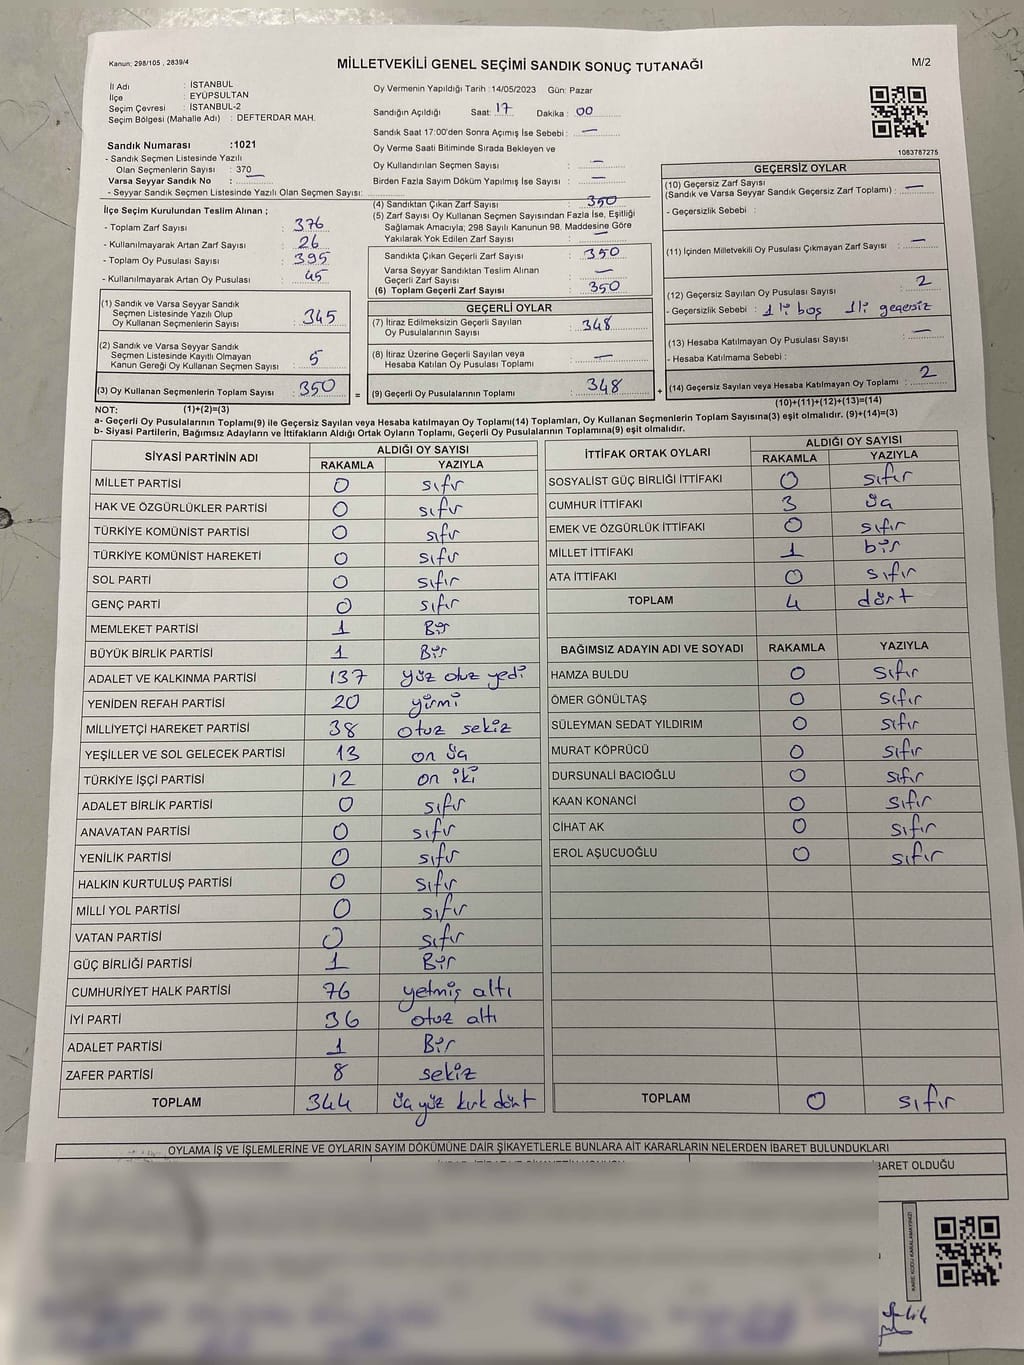 Kanun: 298/105 , 2839/4
MİLLETVEKİLİ GENEL SEÇİMİ SANDIK SONUÇ TUTANAĞI
M/2
İl Adı : İSTANBUL
İlçe : EYÜPSULTAN
Seçim Çevresi : İSTANBUL-2
Seçim Bölgesi (Mahalle Adı) : DEFTERDAR MAH.
Sandık Numarası :1021
- Sandık Seçmen Listesinde Yazılı
Olan Seçmenlerin Sayısı : 370
Varsa Seyyar Sandık No : —
- Seyyar Sandık Seçmen Listesinde Yazılı Olan Seçmen Sayısı:
Oy Vermenin Yapıldığı Tarih :14/05/2023 Gün: Pazar
Sandığın Açıldığı Saat: 17 Dakika : 00
Sandık Saat 17:00'den Sonra Açımış İse Sebebi : —
Oy Verme Saati Bitiminde Sırada Bekleyen ve
Oy Kullandırılan Seçmen Sayısı : —
Birden Fazla Sayım Döküm Yapılmış İse Sayısı : —
1083787275
İlçe Seçim Kurulundan Teslim Alınan ;
- Toplam Zarf Sayısı : 376
- Kullanılmayarak Artan Zarf Sayısı : 26
- Toplam Oy Pusulası Sayısı : 395
- Kullanılmayarak Artan Oy Pusulası : 45
(1) Sandık ve Varsa Seyyar Sandık
Seçmen Listesinde Yazılı Olup
Oy Kullanan Seçmenlerin Sayısı : 345
(2) Sandık ve Varsa Seyyar Sandık
Seçmen Listesinde Kayıtlı Olmayan
Kanun Gereği Oy Kullanan Seçmen Sayısı : 5
(3) Oy Kullanan Seçmenlerin Toplam Sayısı : 350
(4) Sandıktan Çıkan Zarf Sayısı : 350
(5) Zarf Sayısı Oy Kullanan Seçmen Sayısından Fazla İse, Eşitliği
Sağlamak Amacıyla; 298 Sayılı Kanunun 98. Maddesine Göre
Yakılarak Yok Edilen Zarf Sayısı : —
Sandıkta Çıkan Geçerli Zarf Sayısı : 350
Varsa Seyyar Sandıktan Teslim Alınan
Geçerli Zarf Sayısı : —
(6) Toplam Geçerli Zarf Sayısı : 350
GEÇERLİ OYLAR
(7) İtiraz Edilmeksizin Geçerli Sayılan
Oy Pusulalarının Sayısı : 348
(8) İtiraz Üzerine Geçerli Sayılan veya
Hesaba Katılan Oy Pusulası Toplamı : —
= (9) Geçerli Oy Pusulalarının Toplamı : 348
GEÇERSİZ OYLAR
(10) Geçersiz Zarf Sayısı
(Sandık ve Varsa Seyyar Sandık Geçersiz Zarf Toplamı) : —
- Geçersizlik Sebebi :
(11) İçinden Milletvekili Oy Pusulası Çıkmayan Zarf Sayısı : —
(12) Geçersiz Sayılan Oy Pusulası Sayısı : 2
- Geçersizlik Sebebi : 1'i boş 1'i geçersiz
(13) Hesaba Katılmayan Oy Pusulası Sayısı : —
- Hesaba Katılmama Sebebi :
+ (14) Geçersiz Sayılan veya Hesaba Katılmayan Oy Toplamı : 2
NOT: (1)+(2)=(3)
(10)+(11)+(12)+(13)=(14)
a- Geçerli Oy Pusulalarının Toplamı(9) ile Geçersiz Sayılan veya Hesaba katılmayan Oy Toplamı(14) Toplamları, Oy Kullanan Seçmenlerin Toplam Sayısına(3) eşit olmalıdır. (9)+(14)=(3)
b- Siyasi Partilerin, Bağımsız Adayların ve İttifakların Aldığı Ortak Oyların Toplamı, Geçerli Oy Pusulalarının Toplamına(9) eşit olmalıdır.
SİYASİ PARTİNİN ADI ALDIĞI OY SAYISI
RAKAMLA YAZIYLA
MİLLET PARTİSİ 0 sıfır
HAK VE ÖZGÜRLÜKLER PARTİSİ 0 sıfır
TÜRKİYE KOMÜNİST PARTİSİ 0 sıfır
TÜRKİYE KOMÜNİST HAREKETİ 0 sıfır
SOL PARTİ 0 sıfır
GENÇ PARTİ 0 sıfır
MEMLEKET PARTİSİ 1 Bir
BÜYÜK BİRLİK PARTİSİ 1 Bir
ADALET VE KALKINMA PARTİSİ 137 yüz otuz yedi
YENİDEN REFAH PARTİSİ 20 yirmi
MİLLİYETÇİ HAREKET PARTİSİ 38 otuz sekiz
YEŞİLLER VE SOL GELECEK PARTİSİ 13 on üç
TÜRKİYE İŞÇİ PARTİSİ 12 on iki
ADALET BİRLİK PARTİSİ 0 sıfır
ANAVATAN PARTİSİ 0 sıfır
YENİLİK PARTİSİ 0 sıfır
HALKIN KURTULUŞ PARTİSİ 0 sıfır
MİLLİ YOL PARTİSİ 0 sıfır
VATAN PARTİSİ 0 sıfır
GÜÇ BİRLİĞİ PARTİSİ 1 Bir
CUMHURİYET HALK PARTİSİ 76 yetmiş altı
İYİ PARTİ 36 otuz altı
ADALET PARTİSİ 1 Bir
ZAFER PARTİSİ 8 sekiz
TOPLAM 344 üç yüz kırk dört
İTTİFAK ORTAK OYLARI ALDIĞI OY SAYISI
RAKAMLA YAZIYLA
SOSYALİST GÜÇ BİRLİĞİ İTTİFAKI 0 sıfır
CUMHUR İTTİFAKI 3 üç
EMEK VE ÖZGÜRLÜK İTTİFAKI 0 sıfır
MİLLET İTTİFAKI 1 bir
ATA İTTİFAKI 0 sıfır
TOPLAM 4 dört
BAĞIMSIZ ADAYIN ADI VE SOYADI RAKAMLA YAZIYLA
HAMZA BULDU 0 sıfır
ÖMER GÖNÜLTAŞ 0 sıfır
SÜLEYMAN SEDAT YILDIRIM 0 sıfır
MURAT KÖPRÜCÜ 0 sıfır
DURSUNALİ BACIOĞLU 0 sıfır
KAAN KONANCİ 0 sıfır
CİHAT AK 0 sıfır
EROL AŞUCUOĞLU 0 sıfır
TOPLAM 0 sıfır
OYLAMA İŞ VE İŞLEMLERİNE VE OYLARIN SAYIM DÖKÜMÜNE DAİR ŞİKAYETLERLE BUNLARA AİT KARARLARIN NELERDEN İBARET BULUNDUKLARI
İBARET OLDUĞU
KARE KODU KARALAMAYINIZ!